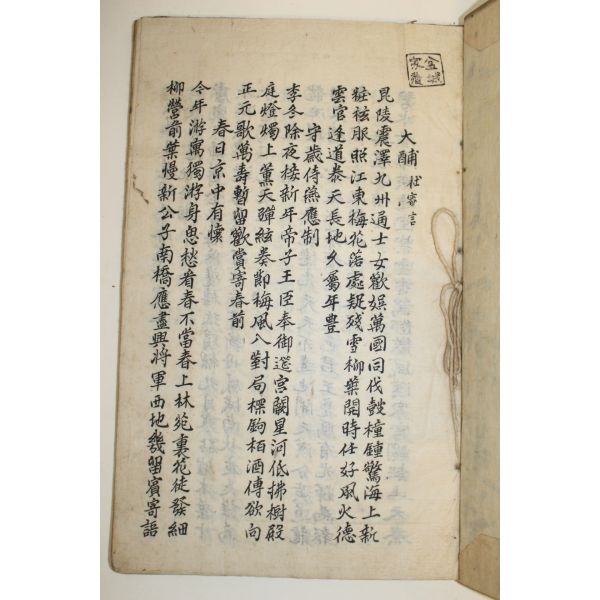 大酺 杜審言
毘陵震澤九州通士女歡娛萬國同伐鼓橦鍾驚海上新
粧袨服照江東梅花落處疑殘雪柳葉開時任好風火德
雲官逢道泰天長地久屬年豊
守歲侍燕應制
季冬除夜接新年帝子王臣奉御筵宮闕星河低拂樹殿
庭燈燭上薰天彈絃奏節梅風入對局探鉤栢酒傳欲向
正元歌萬壽暫留歡賞寄春前
春日京中有懷
今年游寓獨游身思愁看春不當春上林苑裏花徒發細
柳營前葉慢新公子南橋應盡興將軍西地幾留賓寄語